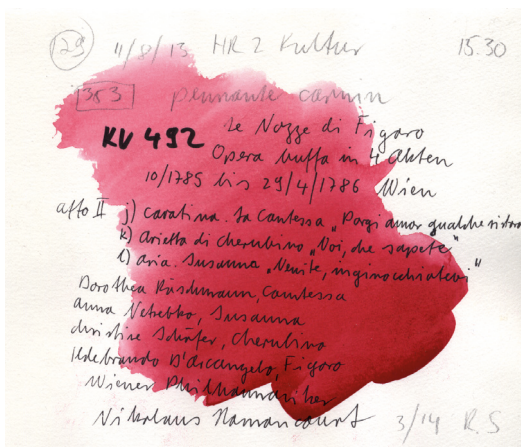 29 4/8/13 HR 2 Kultur 15.30
353 permanente carmin
KV 492 Le Nozze di Figaro
Opera buffa in 4 Akten
10/1785 bis 29/4/1786 Wien
atto II j) cavatina. La Contessa „Porgi amor qualche ristoro
k) arietta di cherubino „Voi, che sapete"
l) aria. Susanna „Venite, inginocchiatevi"
Dorothea Röschmann, Contessa
Anna Netrebko, Susanna
Christine Schäfer, Cherubino
Ildebrando D'Arcangelo, Figaro
Wiener Philharmoniker
Nikolaus Harnoncourt 3/14 R.S